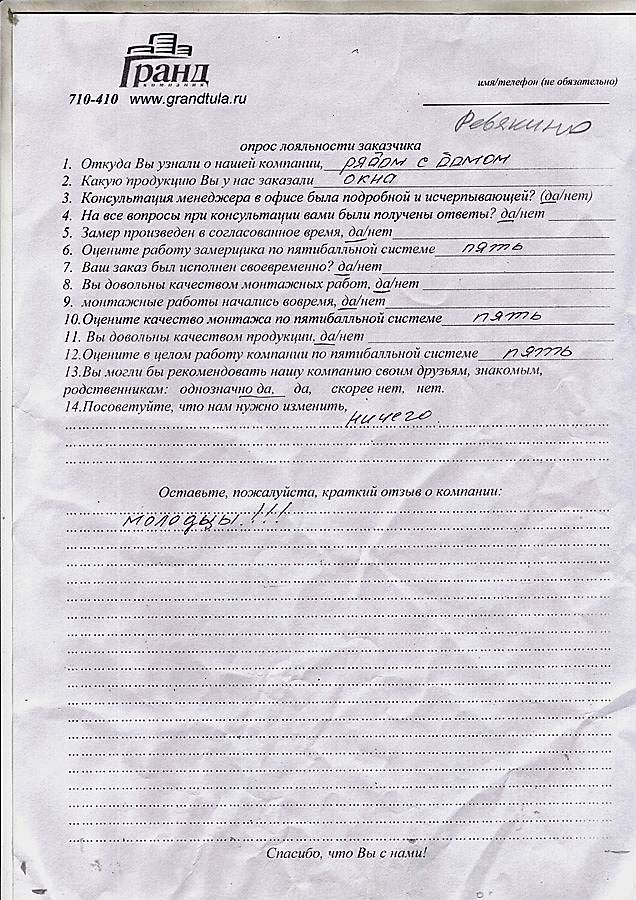 Гранд
компания
710-410 www.grandtula.ru
имя/телефон (не обязательно)
Ревякино
опрос лояльности заказчика
1. Откуда Вы узнали о нашей компании, рядом с домом
2. Какую продукцию Вы у нас заказали окна
3. Консультация менеджера в офисе была подробной и исчерпывающей? (да/нет)
4. На все вопросы при консультации вами были получены ответы? да/нет
5. Замер произведен в согласованное время, да/нет
6. Оцените работу замерщика по пятибалльной системе пять
7. Ваш заказ был исполнен своевременно? да/нет
8. Вы довольны качеством монтажных работ, да/нет
9. монтажные работы начались вовремя, да/нет
10.Оцените качество монтажа по пятибалльной системе пять
11. Вы довольны качеством продукции, да/нет
12.Оцените в целом работу компании по пятибалльной системе пять
13.Вы могли бы рекомендовать нашу компанию своим друзьям, знакомым,
родственникам: однозначно да, да, скорее нет, нет.
14.Посоветуйте, что нам нужно изменить, ничего.
Оставьте, пожалуйста, краткий отзыв о компании:
молодцы!!!
Спасибо, что Вы с нами!